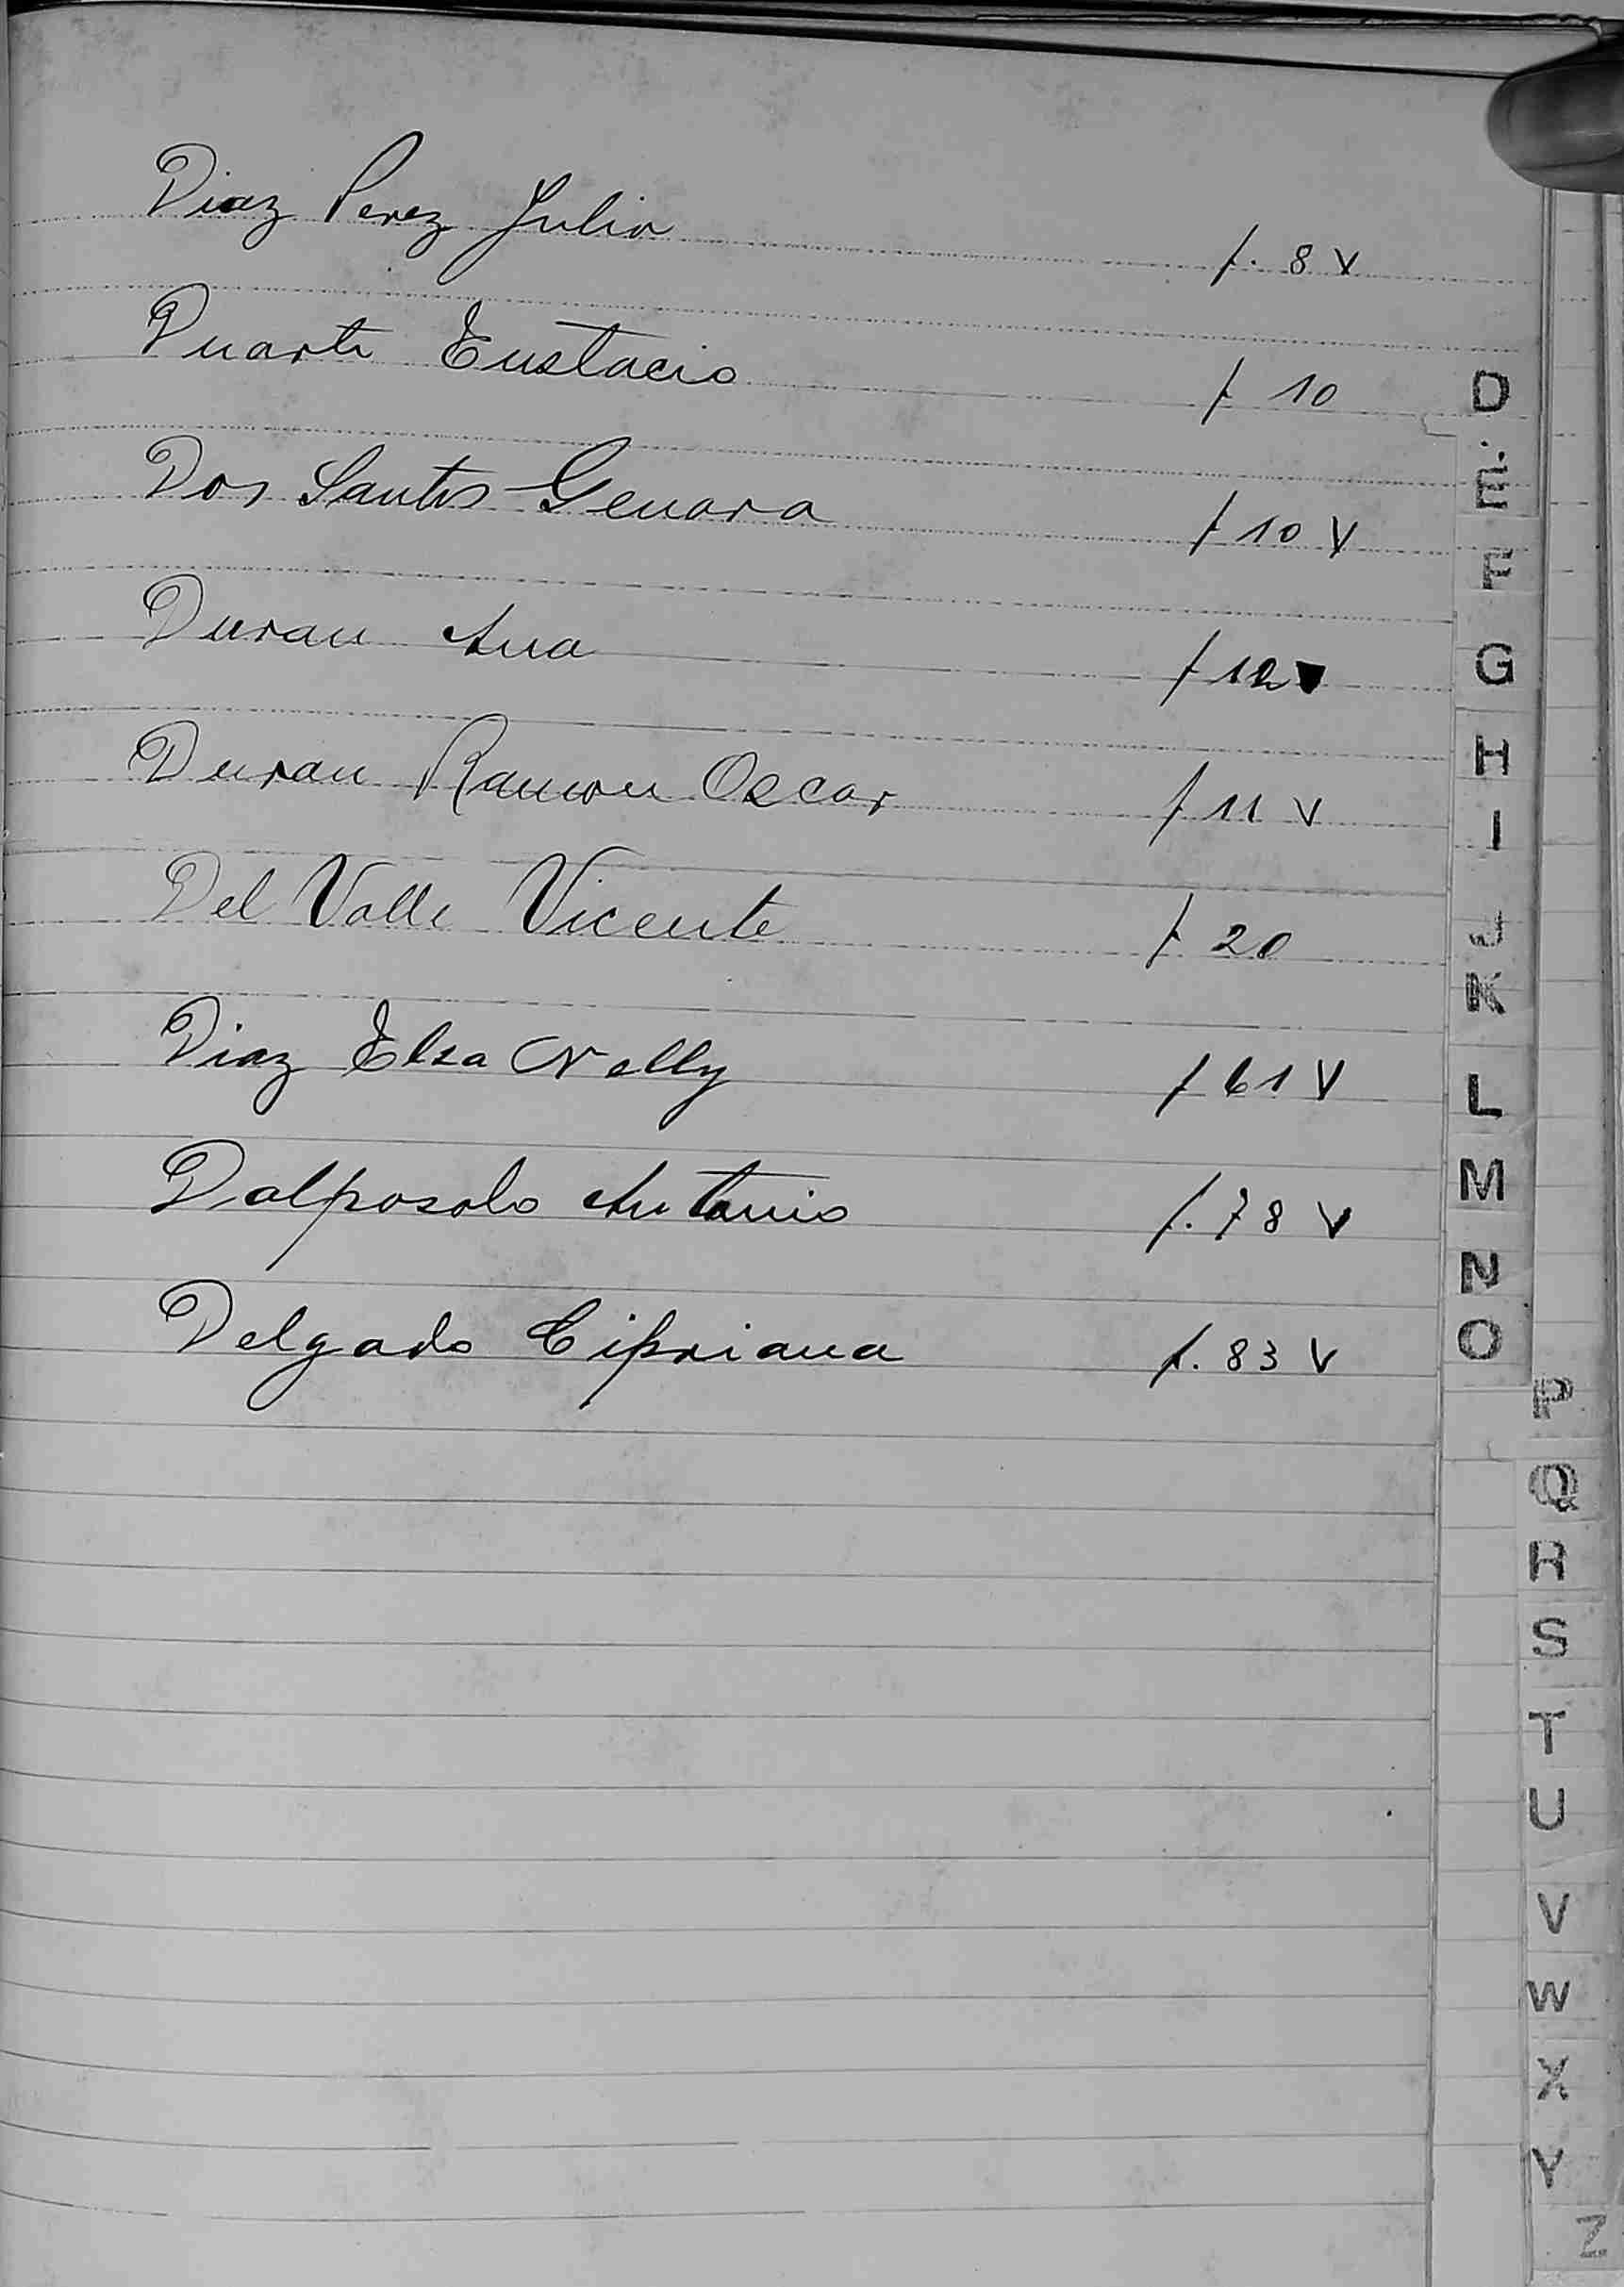 Diaz Perez Julio f. 8 v
Duarte Eustacio f 10
Dos Santos Genara f 10 V
Duran Ana f 12
Duran Ramon Oscar f 11 v
Del Valle Vicente f 20
Diaz Elsa Nelly f 61 V
Dalposolo Antonio f. 78 v
Delgado Cipriana f. 83 v
D
E
F
G
H
I
J
K
L
M
N
O
P
Q
R
S
T
U
V
W
X
Y
Z